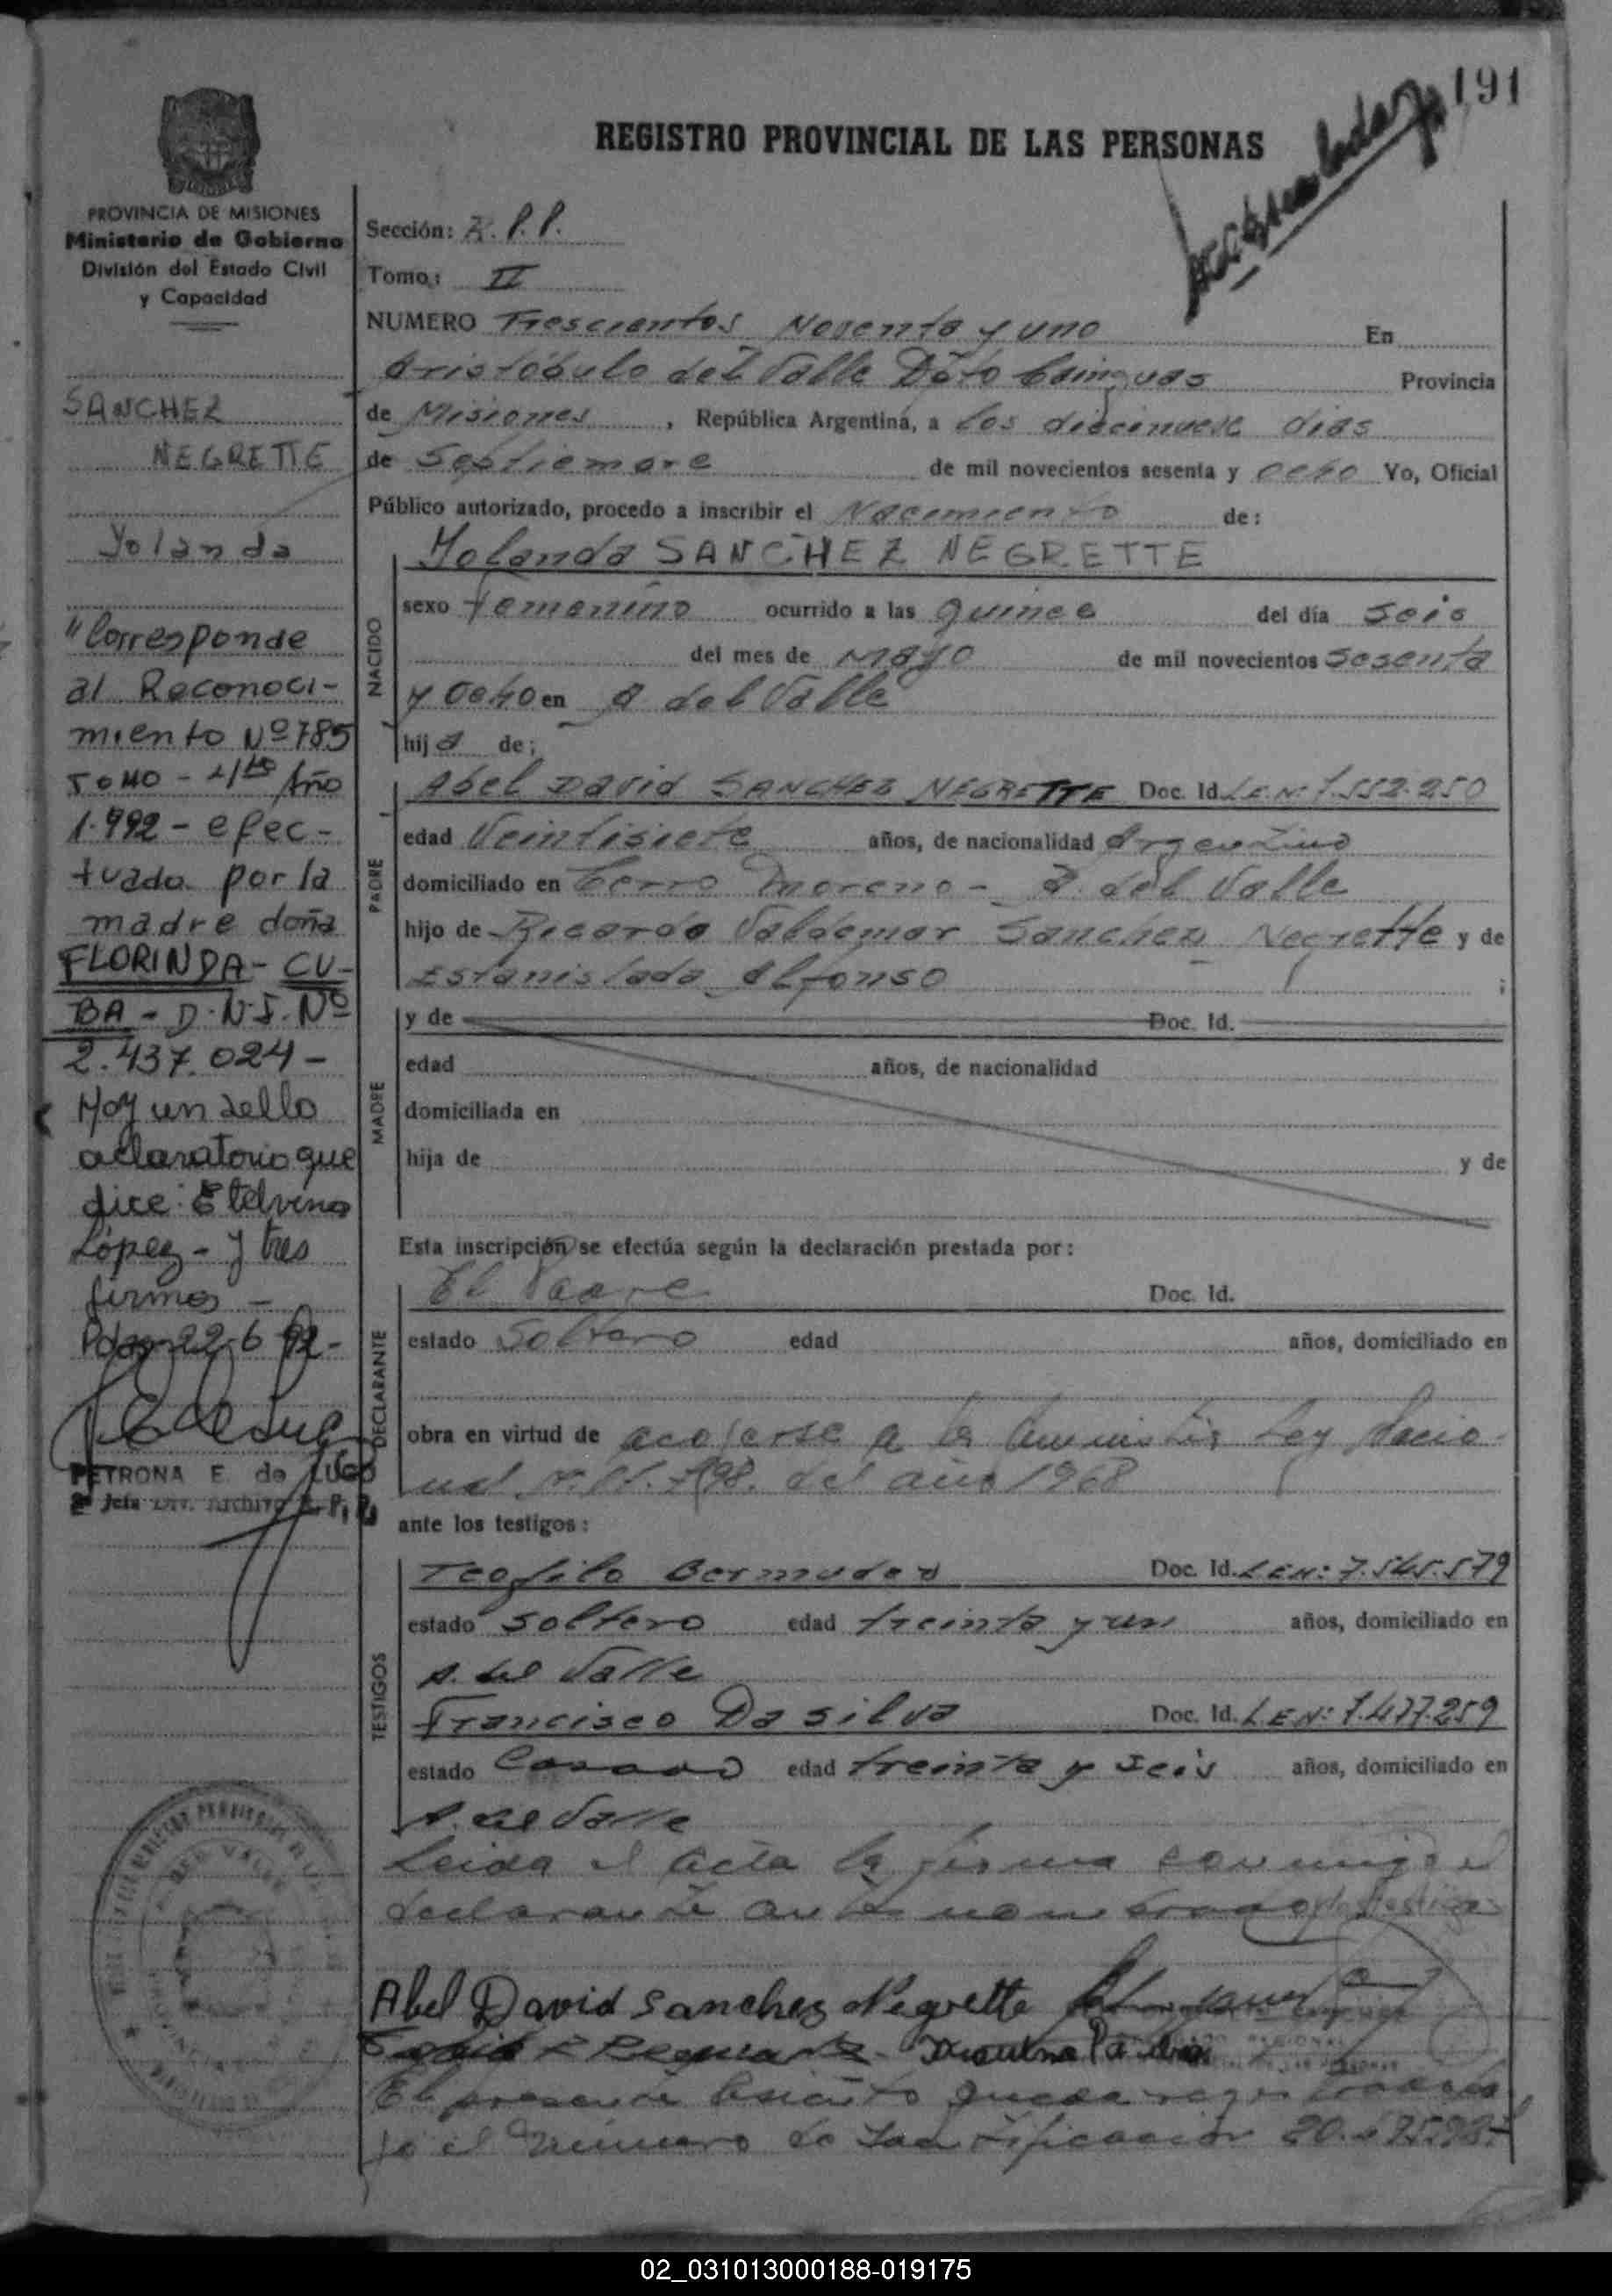 191
REGISTRO PROVINCIAL DE LAS PERSONAS
PROVINCIA DE MISIONES
Ministerio de Gobierno
División del Estado Civil
y Capacidad
SANCHEZ
NEGRETTE
Yolanda
"Corresponde
al Reconoci-
miento Nº 785
TOMO - 4to Año
1.992 - efec-
tuado por la
madre doña
FLORINDA - CU-
BA - D.N.I. Nº
2.437.024 -
Hay un sello
aclaratorio que
dice: Etelvina
López - y tres
firmas -
22-6-92-
PETRONA E. de LUGO
2º Jefa Div. Archivo R. P. P.
Sección: R. P. P.
Tomo: II
NUMERO Trescientos Noventa y uno En
Aristóbulo del Valle Dpto Cainguas Provincia
de Misiones, República Argentina, a los diecinueve dias
de Septiembre de mil novecientos sesenta y ocho Yo, Oficial
Público autorizado, procedo a inscribir el Nacimiento de:
NACIDO
Yolanda SANCHEZ NEGRETTE
sexo femenino ocurrido a las quince del día seis
del mes de Mayo de mil novecientos sesenta
y ocho en A del Valle
hija de;
PADRE
Abel David SANCHEZ NEGRETTE Doc. Id. L.E.N: 7.552.250
edad Veintisiete años, de nacionalidad Argentino
domiciliado en Cerro Moreno - A. del Valle
hijo de Ricardo Valdemar Sanchez Negrette y de
Estanislada Alfonso ;
MADRE
y de Doc. Id.
edad años, de nacionalidad
domiciliada en
hija de y de
Esta inscripción se efectúa según la declaración prestada por:
DECLARANTE
El Padre Doc. Id.
estado Soltero edad años, domiciliado en
obra en virtud de acojerse a la Amnistia Ley Nacio-
nal del año 1968
ante los testigos:
TESTIGOS
Teofilo Bermudez Doc. Id. L.E.N: 7.545.579
estado soltero edad treinta y un años, domiciliado en
A. del Valle
Francisco Da silva Doc. Id. L.E.N: 7.477.259
estado Casado edad treinta y seis años, domiciliado en
A. del Valle
Leida el acta la firma conmigo el
declarante antes nombrado y los testigos
Abel David Sanchez Negrette
El presente Asiento queda registrado ba
jo el Número de Identificación
02_031013000188-019175